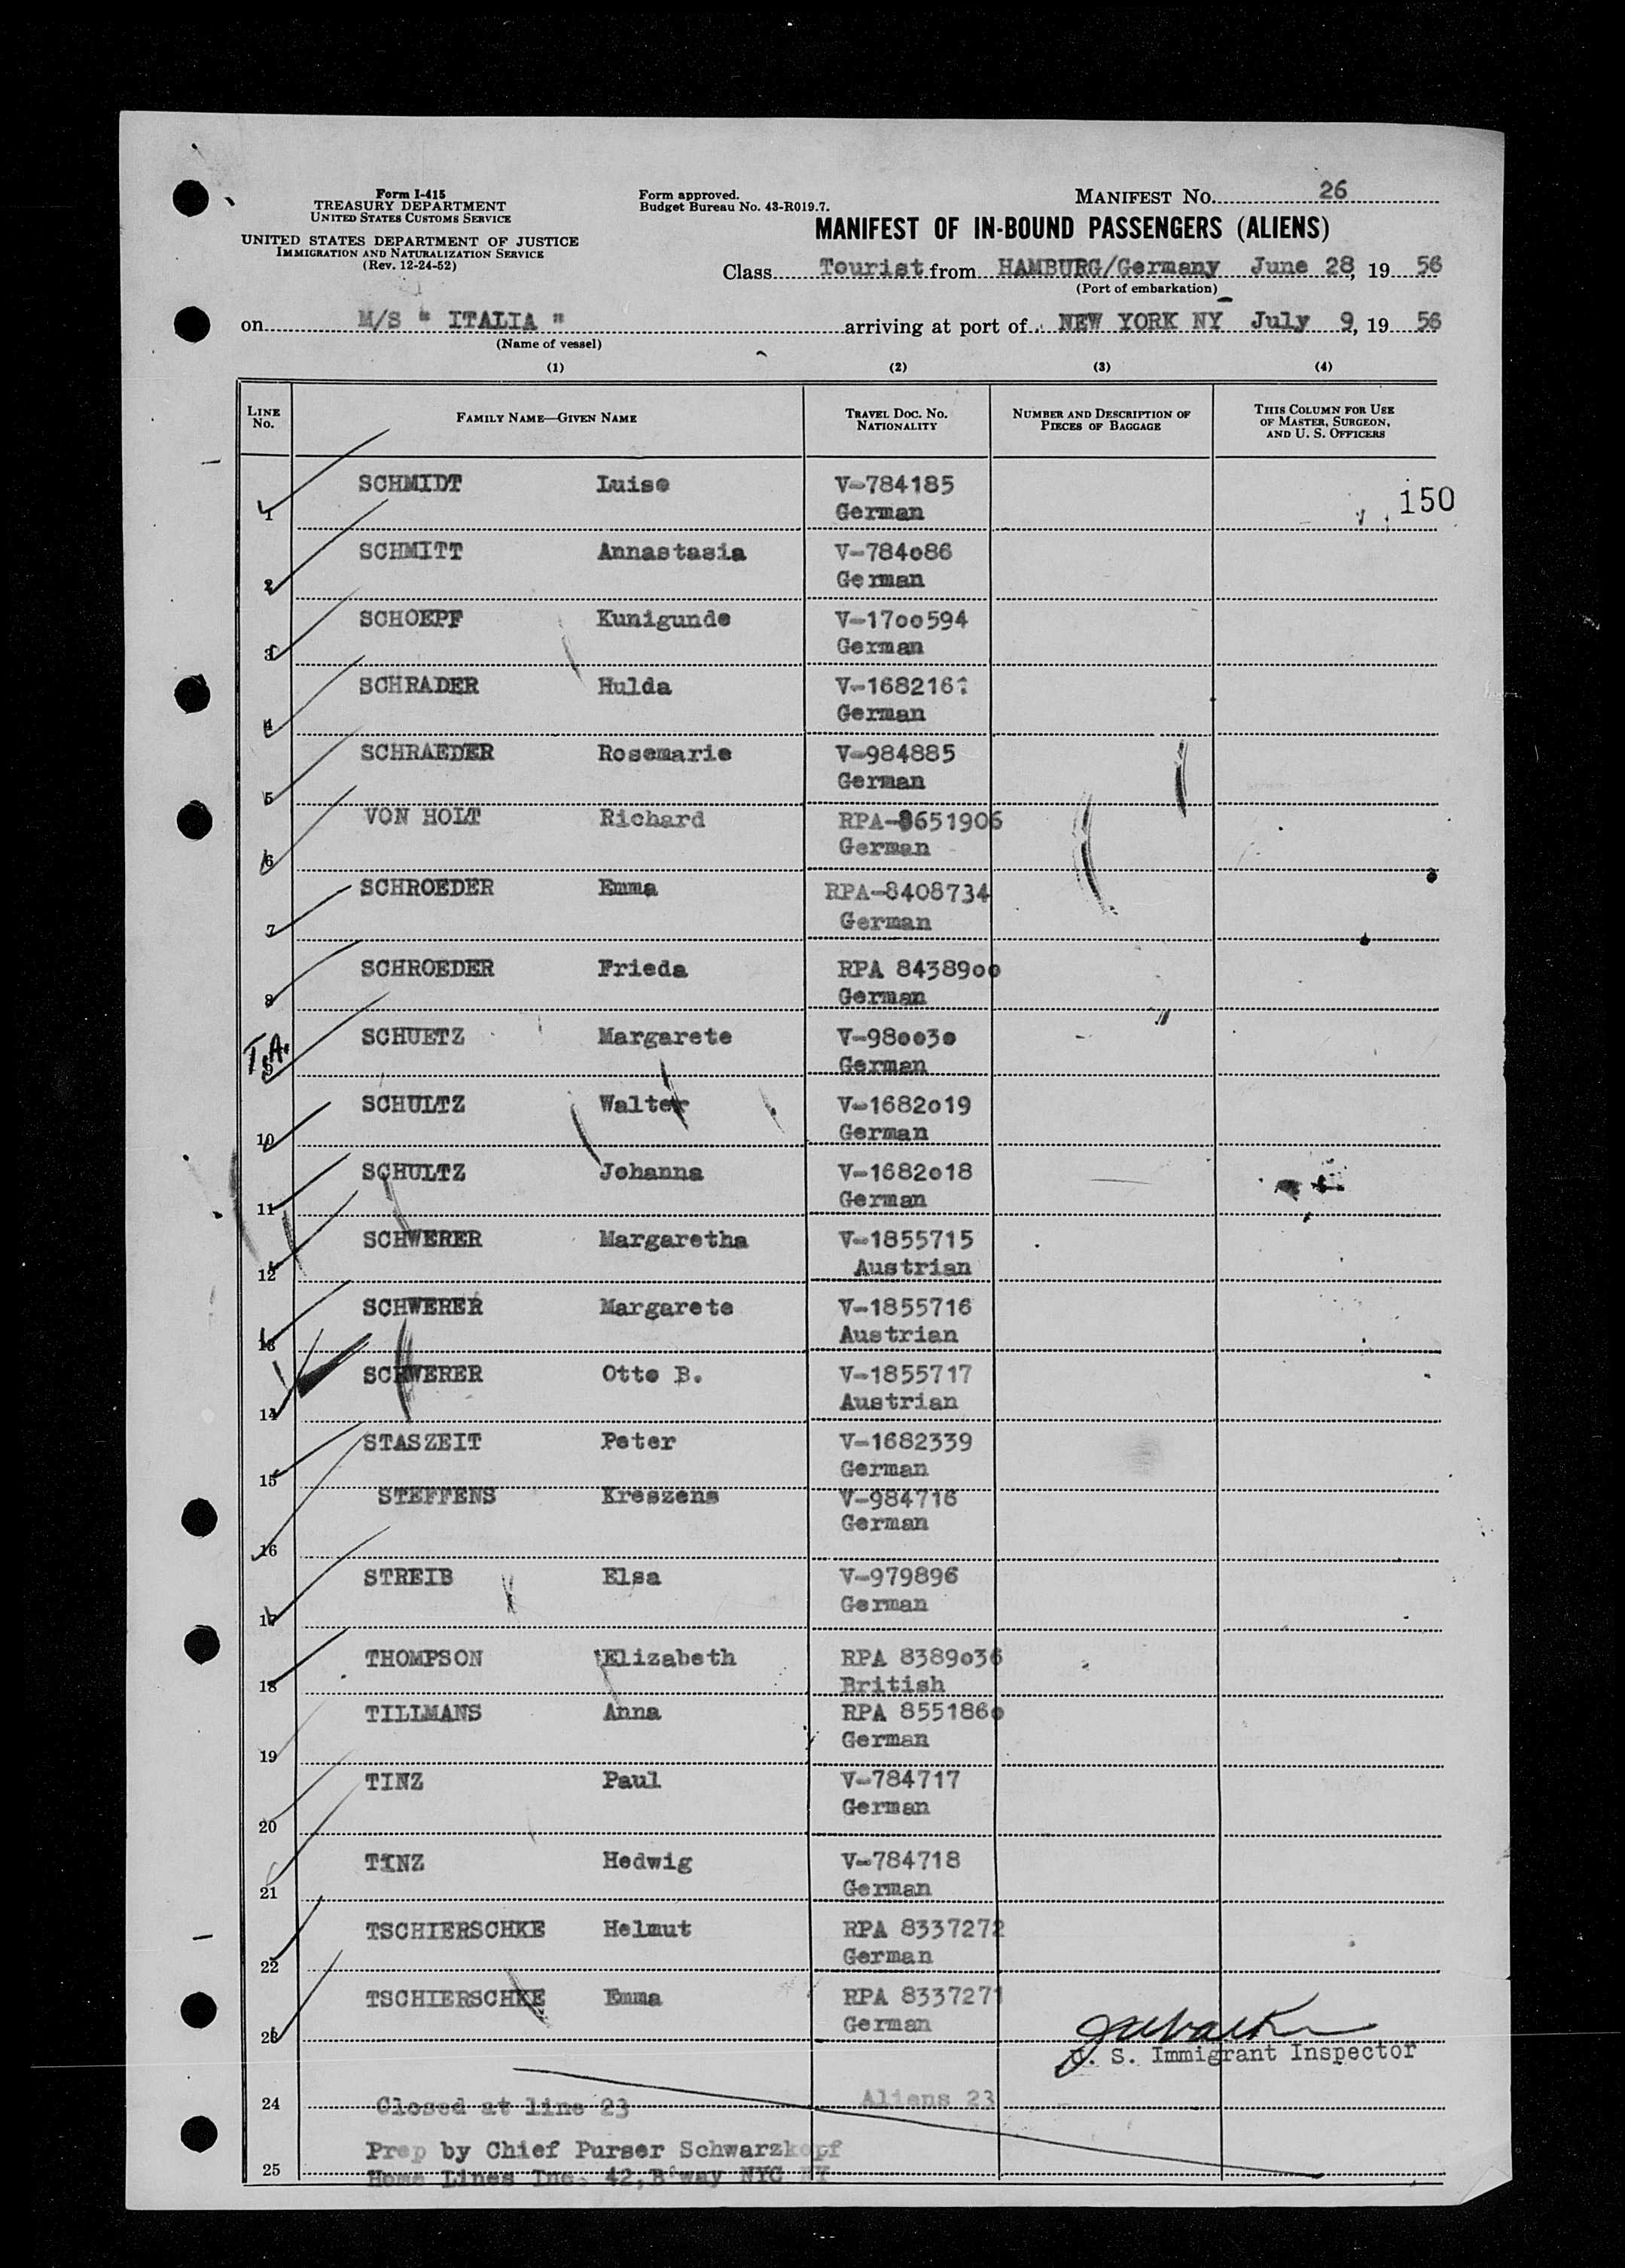 Form I-415
TREASURY DEPARTMENT
UNITED STATES CUSTOMS SERVICE
UNITED STATES DEPARTMENT OF JUSTICE
IMMIGRATION AND NATURALIZATION SERVICE
(Rev. 12-24-52)
Form approved.
Budget Bureau No. 43-R019.7.
MANIFEST No. 26
MANIFEST OF IN-BOUND PASSENGERS (ALIENS)
Class Tourist from HAMBURG/Germany June 28, 19 56
(Port of embarkation)
on M/S " ITALIA " arriving at port of NEW YORK NY July 9, 19 56
(Name of vessel)
(1) (2) (3) (4)
LINE No. FAMILY NAME—GIVEN NAME TRAVEL DOC. NO. NATIONALITY NUMBER AND DESCRIPTION OF PIECES OF BAGGAGE THIS COLUMN FOR USE OF MASTER, SURGEON, AND U. S. OFFICERS
SCHMIDT Luise V-784185
1 German 150
SCHMITT Annastasia V-784o86
2 German
SCHOEPF Kunigunde V-17oo594
3 German
SCHRADER Hulda V-168216
4 German
SCHRAEDER Rosemarie V-984885
5 German
VON HOLT Richard RPA-8651906
6 German
SCHROEDER Emma RPA-8408734
7 German
SCHROEDER Frieda RPA 84389oo
8 German
SCHUETZ Margarete V-98oo3o
T.A. 9 German
SCHULTZ Walter V-1682o19
10 German
SCHULTZ Johanna V-1682o18
11 German
SCHWERER Margaretha V-1855715
12 Austrian
SCHWERER Margarete V-1855716
13 Austrian
SCHWERER Otto B. V-1855717
14 Austrian
STASZEIT Peter V-1682339
15 German
STEFFENS Kreszens V-984716
16 German
STREIB Elsa V-979896
17 German
THOMPSON Elizabeth RPA 8389o36
18 British
TILLMANS Anna RPA 855186o
19 German
TINZ Paul V-784717
20 German
TINZ Hedwig V-784718
21 German
TSCHIERSCHKE Helmut RPA 8337272
22 German
TSCHIERSCHKE Emma RPA 8337271
23 German
U. S. Immigrant Inspector
24 Closed at line 23 Aliens 23
Prep by Chief Purser Schwarzkopf
25 Home Lines Inc. 42,B'way NYC NY